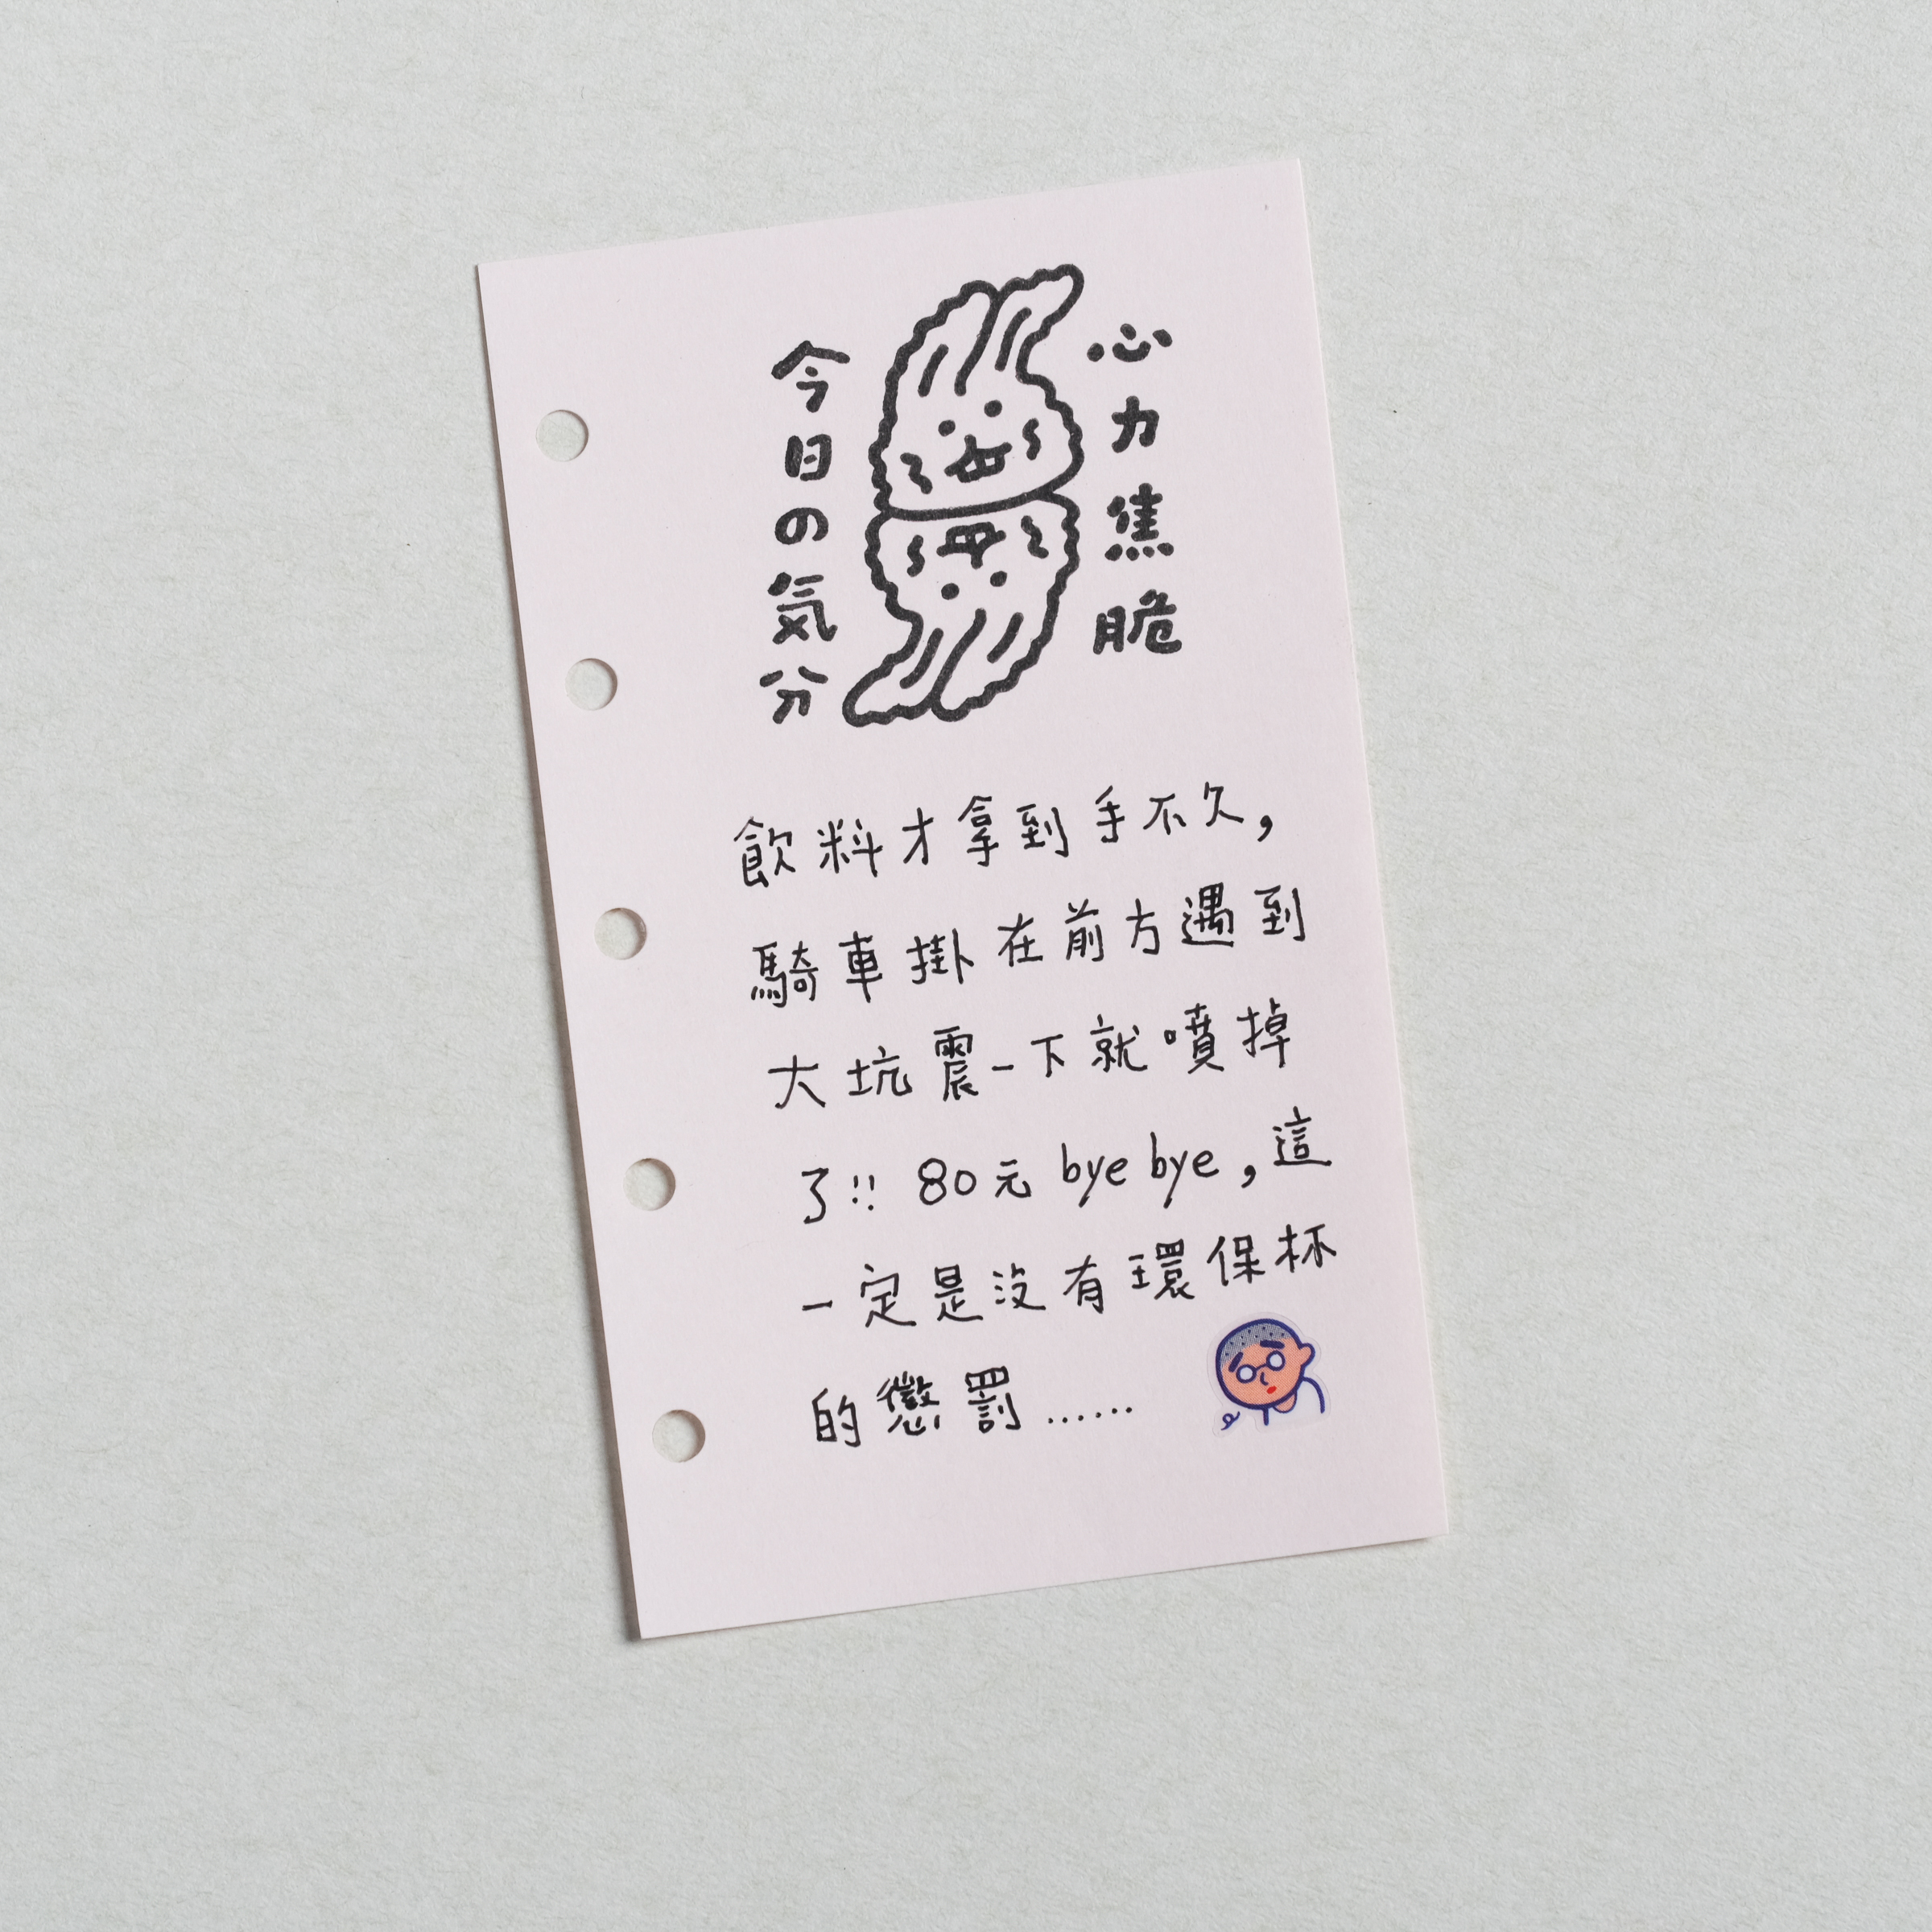 今日の気分
心力焦脆
飲料才拿到手不久,
騎車掛在前方遇到
大坑震一下就噴掉
了!! 80元 bye bye,這
一定是沒有環保杯
的懲罰……